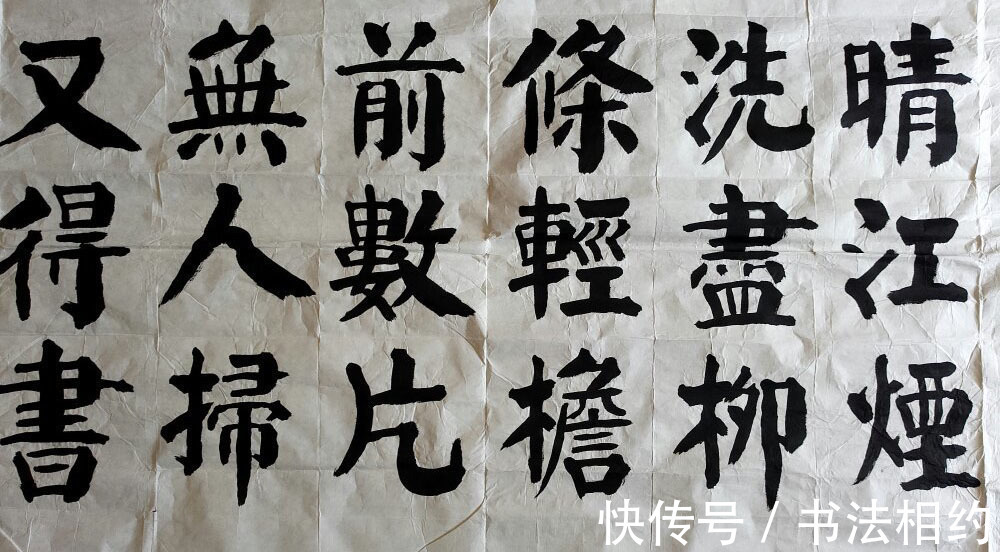 晴江煙
洗盡柳
條輕檐
前數片
無人掃
又得書
快传号 / 书法相约